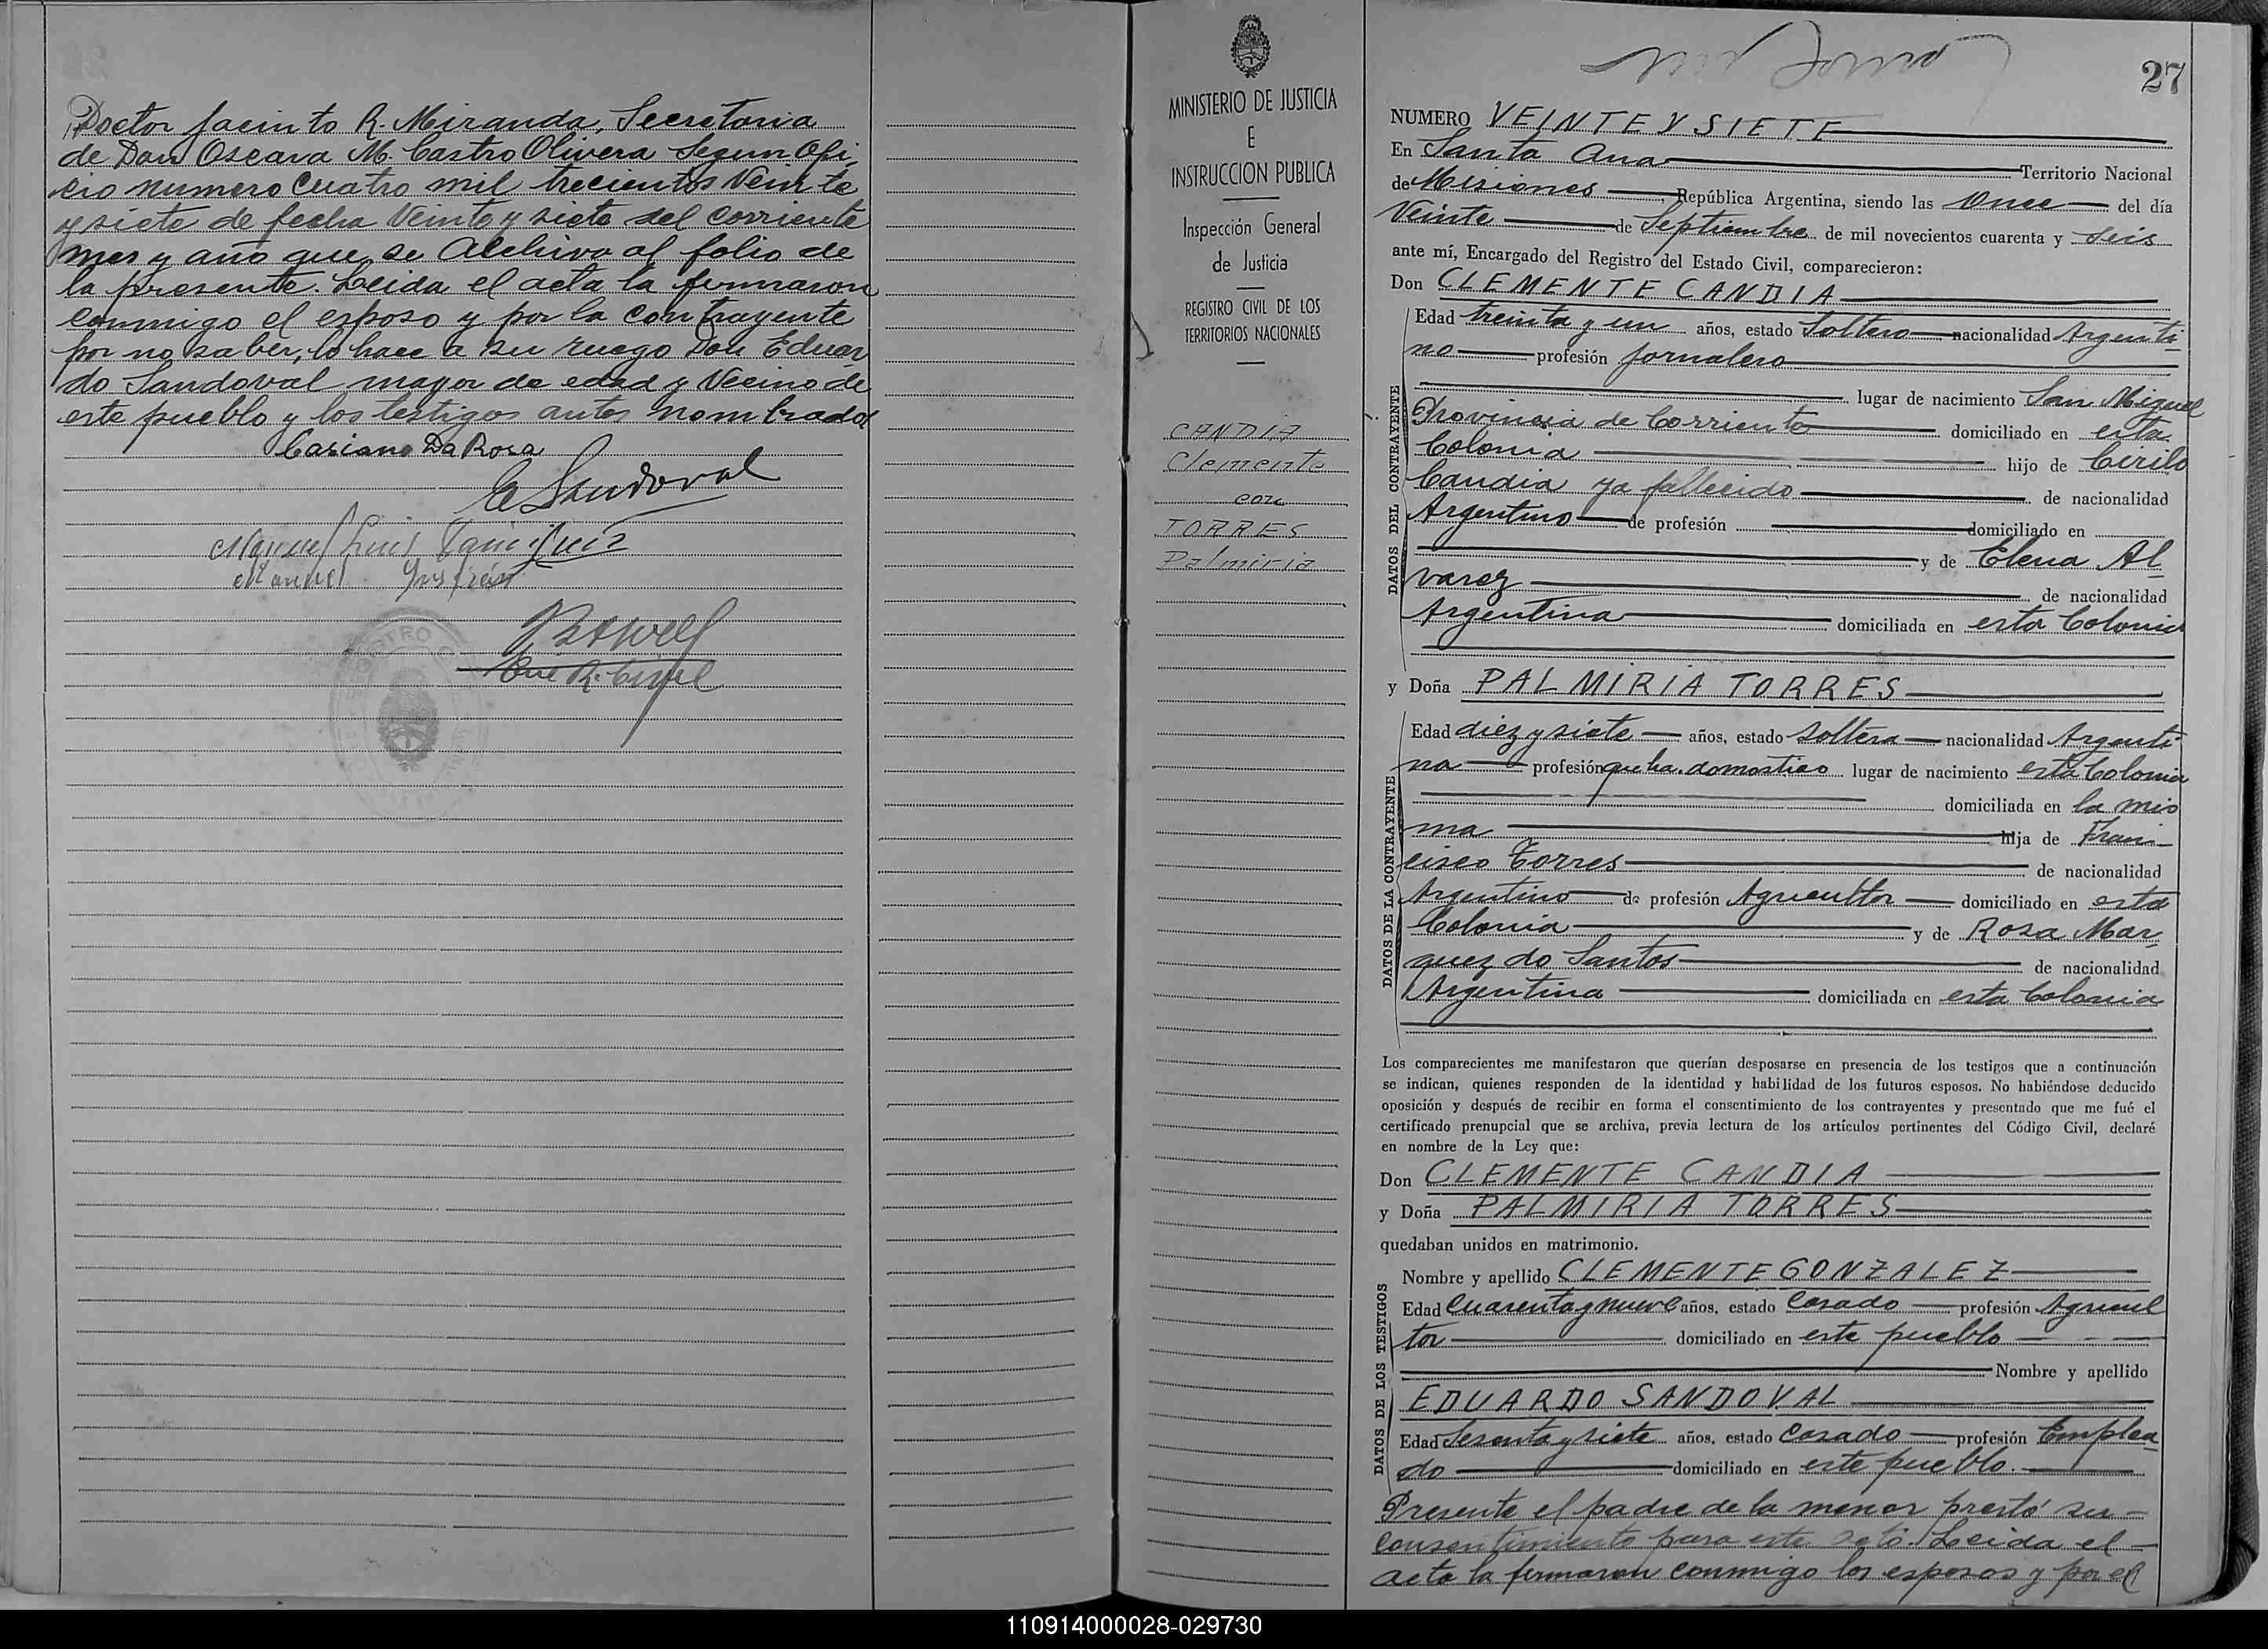 Doctor Jacinto R. Miranda, Secretaria
de Don Oscara M. Castro Olivera segun Ofi-
cio numero cuatro mil trecientos veinte
y siete de fecha veinte y siete del corriente
mes y año que se Archiva al folio de
la presente. Leida el acta la firmaron
conmigo el esposo y por la contrayente
por no saber, lo hace a su ruego Don Eduar
do Sandoval mayor de edad y vecino de
este pueblo y los testigos antes nombrados
Casiano Da Rosa
E Sandoval
Manuel
Enc R. Civil
MINISTERIO DE JUSTICIA
E
INSTRUCCION PUBLICA
Inspección General
de Justicia
REGISTRO CIVIL DE LOS
TERRITORIOS NACIONALES
CANDIA
Clemente
con
TORRES
Palmiria
27
NUMERO VEINTE Y SIETE
En Santa Ana Territorio Nacional
de Misiones, República Argentina, siendo las Once del día
Veinte de Septiembre de mil novecientos cuarenta y Seis
ante mí, Encargado del Registro del Estado Civil, comparecieron:
Don CLEMENTE CANDIA
DATOS DEL CONTRAYENTE
Edad treinta y un años, estado Soltero nacionalidad Argenti-
no profesión Jornalero
lugar de nacimiento San Miguel
Provincia de Corrientes domiciliado en esta
Colonia hijo de Cirilo
Candia ya fallecido de nacionalidad
Argentino de profesión domiciliado en
y de Elena Al-
varez de nacionalidad
Argentina domiciliada en esta Colonia
y Doña PALMIRIA TORRES
DATOS DE LA CONTRAYENTE
Edad diez y siete años, estado soltera nacionalidad Argenti-
na profesión queha. domestico lugar de nacimiento esta Colonia
domiciliada en la mis
ma hija de Fran-
cisco Torres de nacionalidad
Argentino de profesión Agricultor domiciliado en esta
Colonia y de Rosa Mar-
quez do Santos de nacionalidad
Argentina domiciliada en esta Colonia
Los comparecientes me manifestaron que querían desposarse en presencia de los testigos que a continuación
se indican, quienes responden de la identidad y habilidad de los futuros esposos. No habiéndose deducido
oposición y después de recibir en forma el consentimiento de los contrayentes y presentado que me fué el
certificado prenupcial que se archiva, previa lectura de los artículos pertinentes del Código Civil, declaré
en nombre de la Ley que:
Don CLEMENTE CANDIA
y Doña PALMIRIA TORRES
quedaban unidos en matrimonio.
DATOS DE LOS TESTIGOS
Nombre y apellido CLEMENTE GONZALEZ
Edad Cuarenta y nueve años, estado Casado profesión Agricul
tor domiciliado en este pueblo
Nombre y apellido
EDUARDO SANDOVAL
Edad Sesenta y siete años, estado Casado profesión Emplea-
do domiciliado en este pueblo.
Presente el padre de la menor prestó su
consentimiento para este acto. Leida el
acta la firmaron conmigo los esposos y por el
110914000028-029730